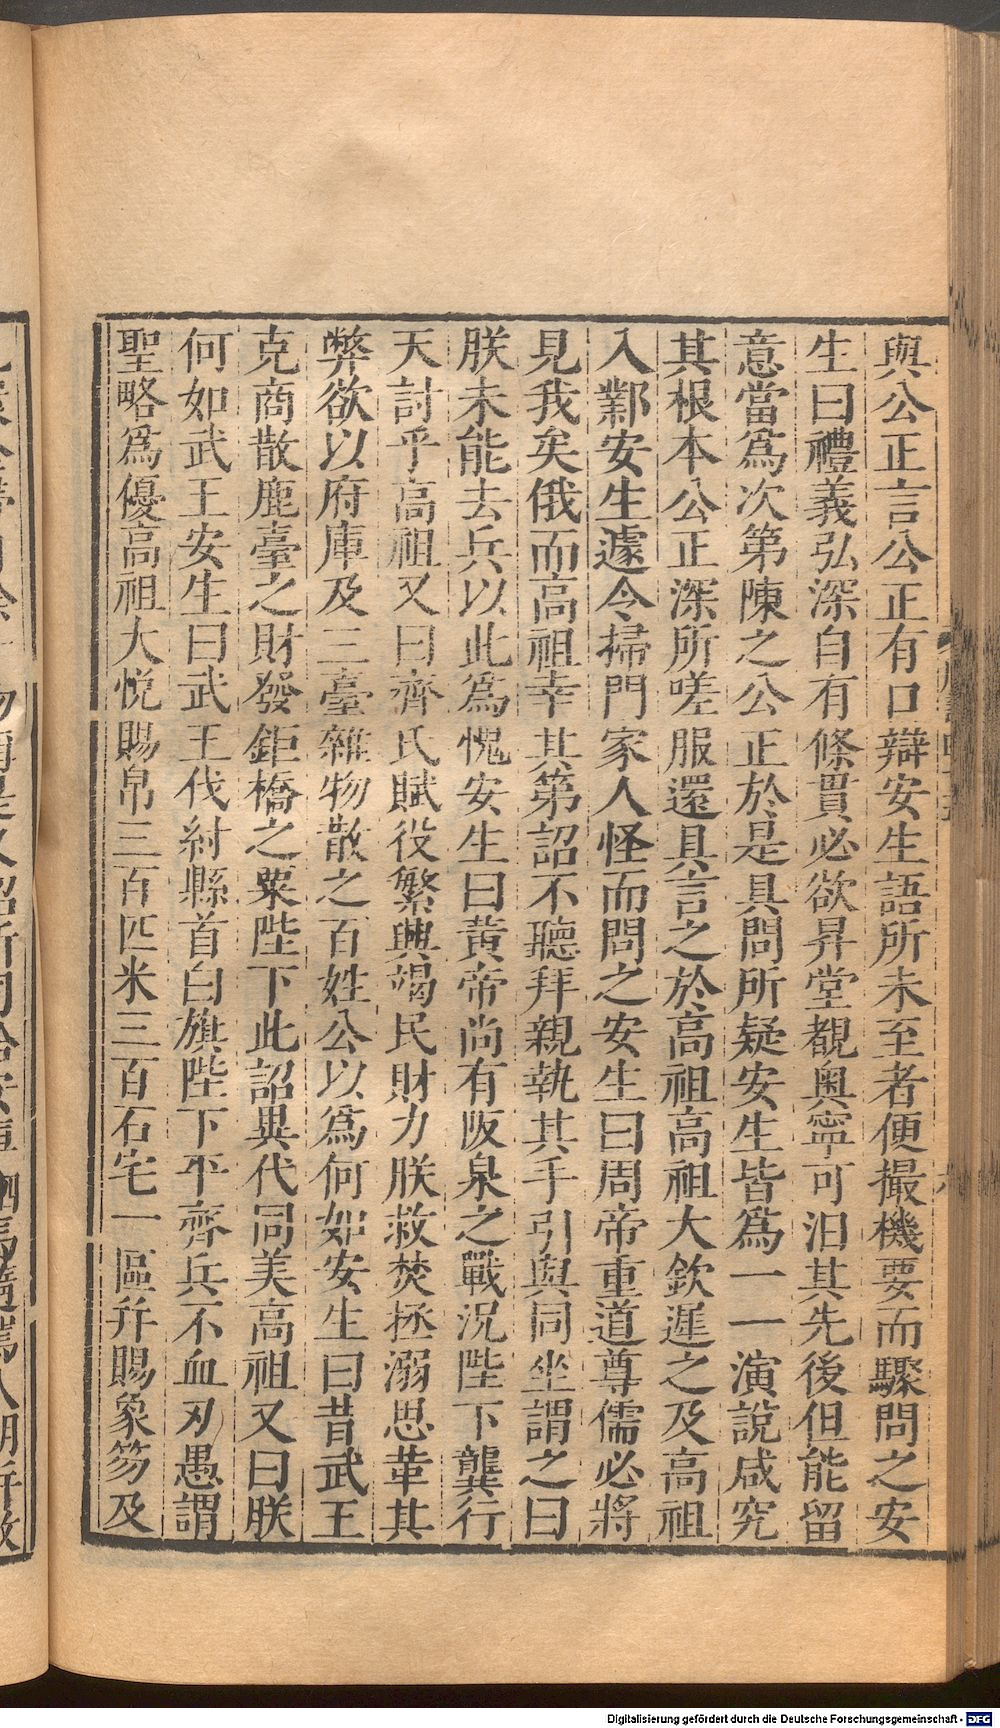 與公正言公正有口辯安生語所未至者便撮機要而驟問之安
生曰禮義弘深自有條貫必欲昇堂覩奥寧可汩其先後但能留
意當爲次第陳之公正於是具問所疑安生皆爲一一演説咸究
其根本公正深所嗟服還具言之於高祖高祖大欽遲之及高祖
入鄴安生遽令掃門家人怪而問之安生曰周帝重道尊儒必將
見我矣俄而高祖幸其第詔不聽拜親執其手引與同坐謂之曰
朕未能去兵以此爲愧安生曰黄帝尚有阪泉之戰況陛下龔行
天討乎高祖又曰齊氏賦役繁興竭民財力朕救焚拯溺思革其
弊欲以府庫及三臺雜物散之百姓公以爲何如安生曰昔武王
克商散鹿臺之財發鉅橋之粟陛下此詔異代同美高祖又曰朕
何如武王安生曰武王伐紂縣首白旗陛下平齊兵不血刃愚謂
聖略爲優高祖大悦賜帛三百匹米三百石宅一區幷賜象笏及
Digitalisierung gefördert durch die Deutsche Forschungsgemeinschaft - DFG